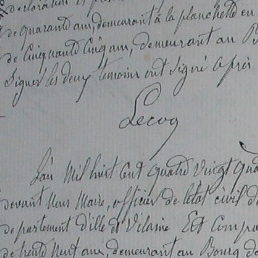 déclaration et p
de quarante ans, demeurant à la planchette en
de Cinquante Cinq ans, demeurant au B
Signer les deux témoins ont signé le prés
Lecoq
L'an Mil huit cent quatre Vingt Qua
devant nous Maire, officier de l'état civil d
département d'Ille et Vilaine Est Compa
de trente neuf ans, demeurant au Bourg de